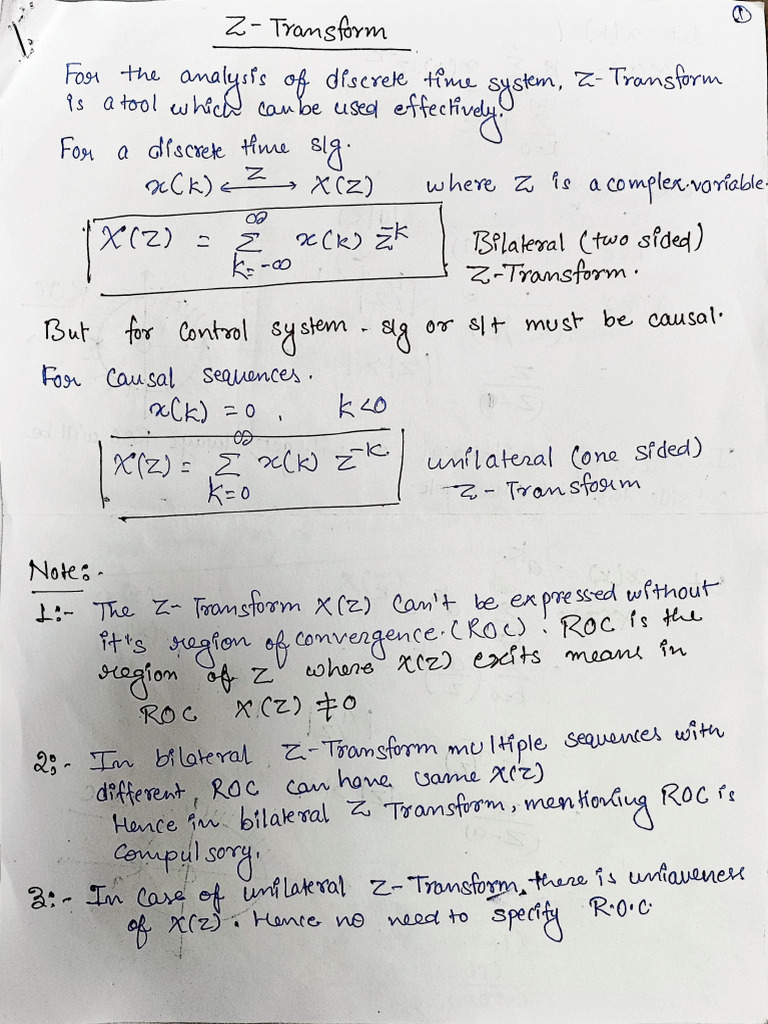 1
Z-Transform
For the analysis of discrete time system, Z-Transform
is a tool which can be used effectively.
For a discrete time slg.
x(k) ←Z→ X(Z) where Z is a complex variable.
X(Z) = ∞ Σ k=-∞ x(k) z^-k Bilateral (two sided)
Z-Transform.
But for control system - slg or s/t must be causal.
For causal sequences.
x(k) = 0 , k<0
X(Z) = ∞ Σ k=0 x(k) z^-k unilateral (one sided)
Z-Transform
Note:-
1:- The Z-Transform X(Z) can't be expressed without
it's region of convergence. (ROC). ROC is the
region of Z where X(Z) exits means in
ROC X(Z) ≠ 0
2:- In bilateral Z-Transform multiple sequences with
different ROC can have same X(Z)
Hence in bilateral Z Transform, mentioning ROC is
compulsory.
3:- In case of unilateral Z-Transform, there is uniqueness
of X(Z). Hence no need to specify R.O.C.